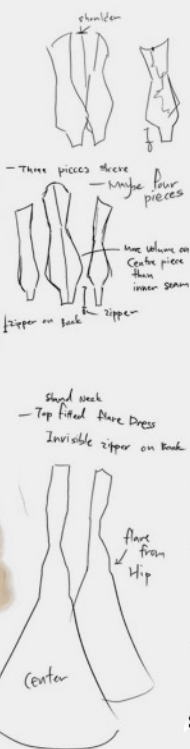 shoulder
- Three pieces sleeve
- Maybe four
pieces
More volume on
Centre piece
than
inner seam
zipper on Back
zipper
Stand Neck
- Top fitted flare Dress
Invisible zipper on Back
flare
from
Hip
Center